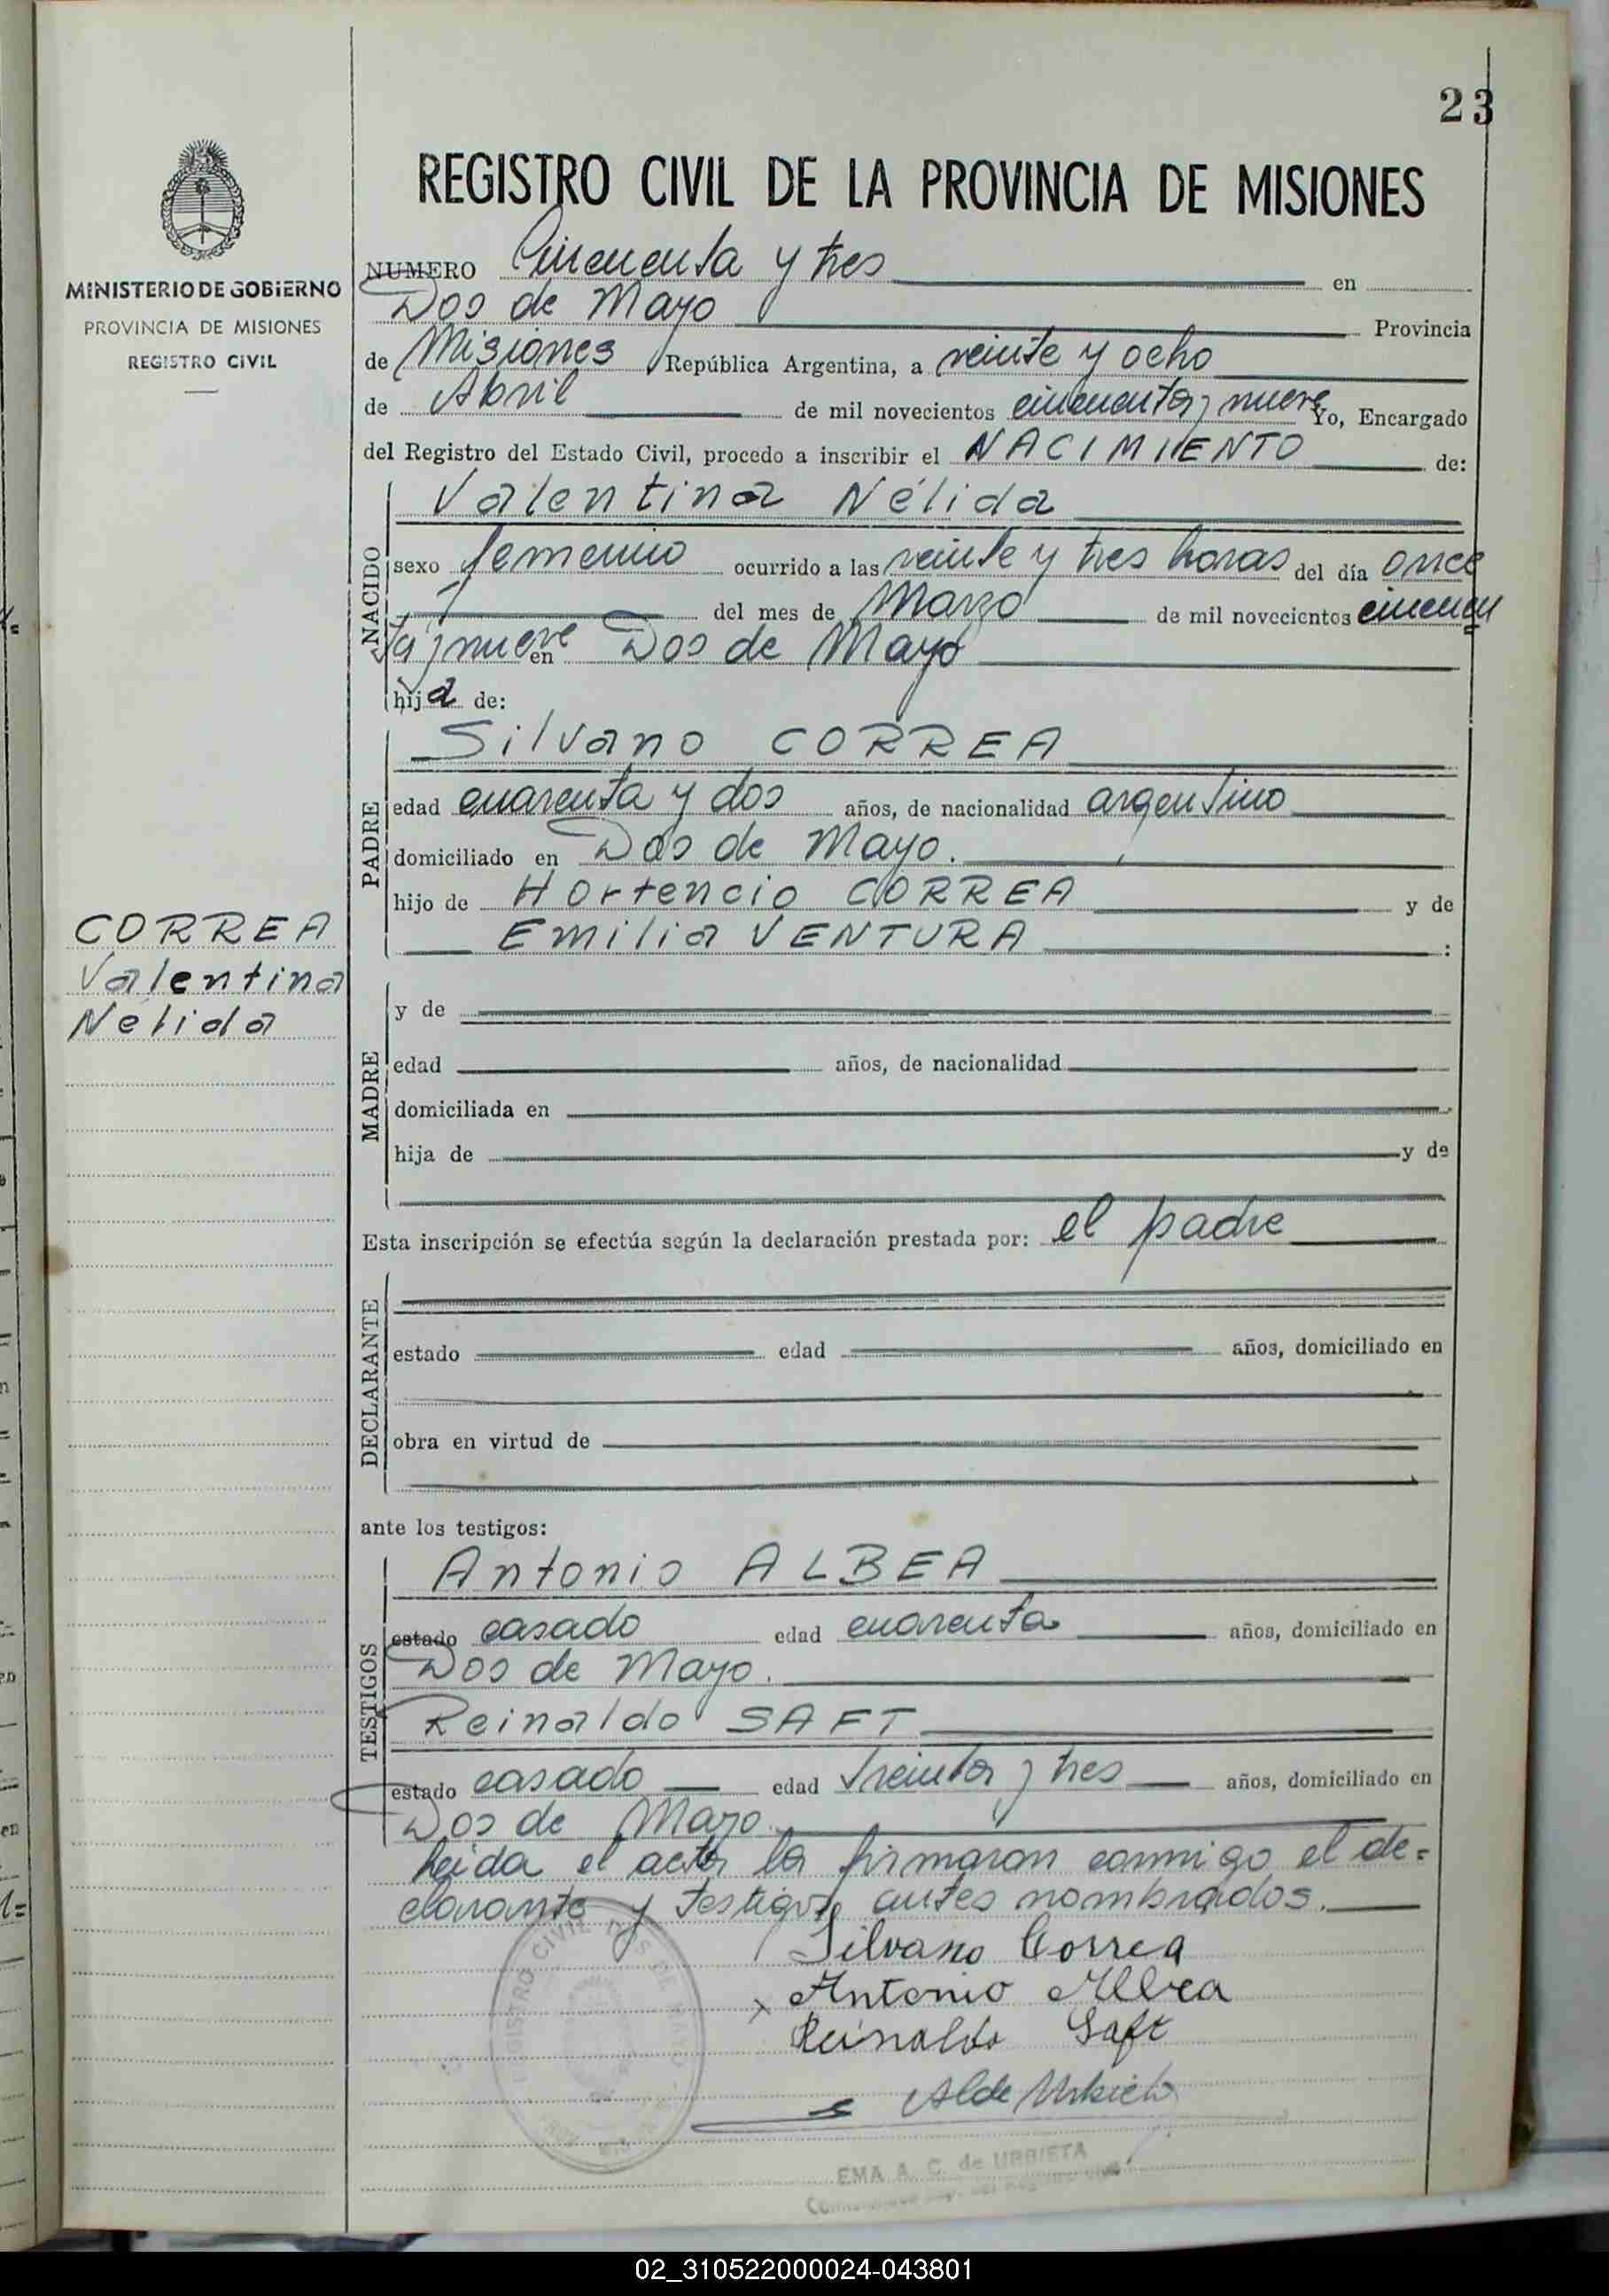 23
REGISTRO CIVIL DE LA PROVINCIA DE MISIONES
MINISTERIO DE GOBIERNO
PROVINCIA DE MISIONES
REGISTRO CIVIL
NUMERO Cincuenta y tres en
Dos de Mayo Provincia
de Misiones República Argentina, a veinte y ocho
de Abril de mil novecientos cincuenta y nueve Yo, Encargado
del Registro del Estado Civil, procedo a inscribir el NACIMIENTO de:
NACIDO
Valentina Nélida
sexo femenino ocurrido a las veinte y tres horas del día once
del mes de Marzo de mil novecientos cincuen
ta y nueve en Dos de Mayo
hija de:
PADRE
Silvano CORREA
edad cuarenta y dos años, de nacionalidad argentino
domiciliado en Dos de Mayo.
hijo de Hortencio CORREA y de
Emilia VENTURA :
CORREA
Valentina
Nélida
MADRE
y de
edad años, de nacionalidad
domiciliada en
hija de y de
Esta inscripción se efectúa según la declaración prestada por: el padre
DECLARANTE
estado edad años, domiciliado en
obra en virtud de
ante los testigos:
TESTIGOS
Antonio ALBEA
estado casado edad cuarenta años, domiciliado en
Dos de Mayo.
Reinaldo SAFT
estado casado edad treinta y tres años, domiciliado en
Dos de Mayo.
Leida el acta la firmaron conmigo el de=
clarante y testigos antes nombrados.
Silvano Correa
x Antonio Albea
Reinaldo Saft
REGISTRO CIVIL DOS DE MAYO
EMA A. C. de URBIETA
02_310522000024-043801